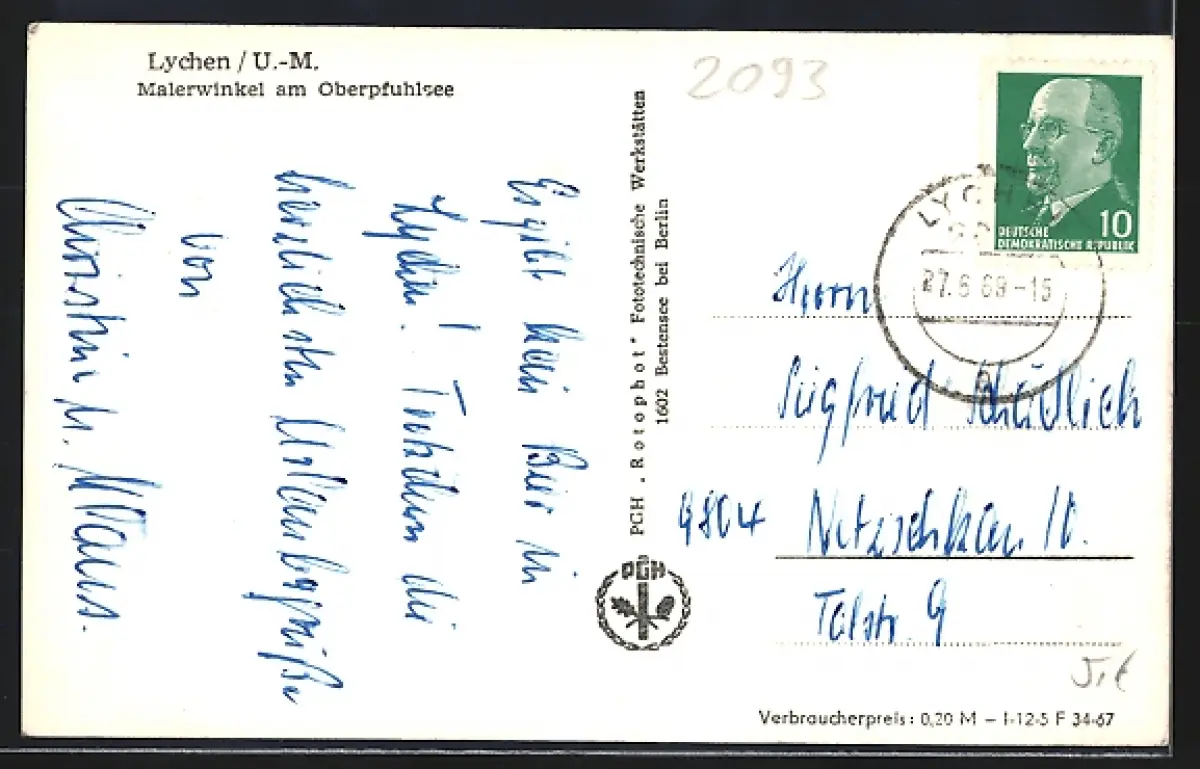 Lychen / U.-M.
Malerwinkel am Oberpfuhlsee
2093
Es gibt kein Bier in
Lychen! Trotzdem die
herzlichsten Urlaubsgrüße
von
Christin u. Klaus.
PGH „Rotophot“ Fototechnische Werkstätten
1602 Bestensee bei Berlin
PGH
10
DEUTSCHE
DEMOKRATISCHE REPUBLIK
LYCHEN
27.6.69-15
Herrn
Siegfried Schädlich
9804 Netzschkau
Talstr. 9
Verbraucherpreis: 0,20 M – I-12-5 F 34-67